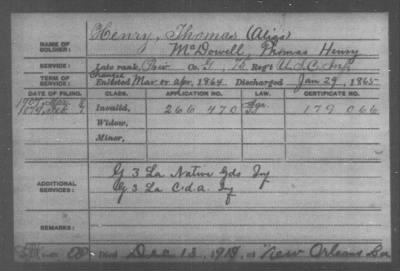 Henry, Thomas (Alias)
NAME OF SOLDIER: McDowell, Thomas Henry
SERVICE: Late rank, Co. G, 76 Reg't U.S.C. Inf.
TERM OF SERVICE: Enlisted Mar or Apr, 1864 Discharged Jan 29, 1865
DATE OF FILING. CLASS. APPLICATION NO. LAW. CERTIFICATE NO.
Invalid, 266 470 179 066
Widow,
Minor,
ADDITIONAL SERVICES: G 3 La Native Gds Inf
G 3 La C.d.a. Inf
REMARKS:
Died Dec 13, 1918, at New Orleans La